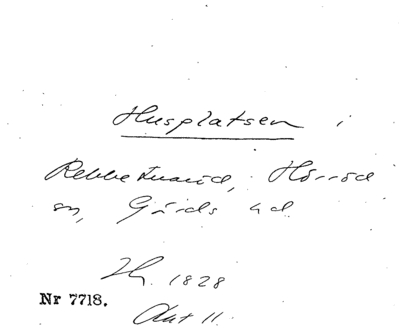 Husplatsen i
Rebbetuaröd, Hörröd
sn, Gärds hd.
Hg. 1828
Nr 7718.
Akt 11.